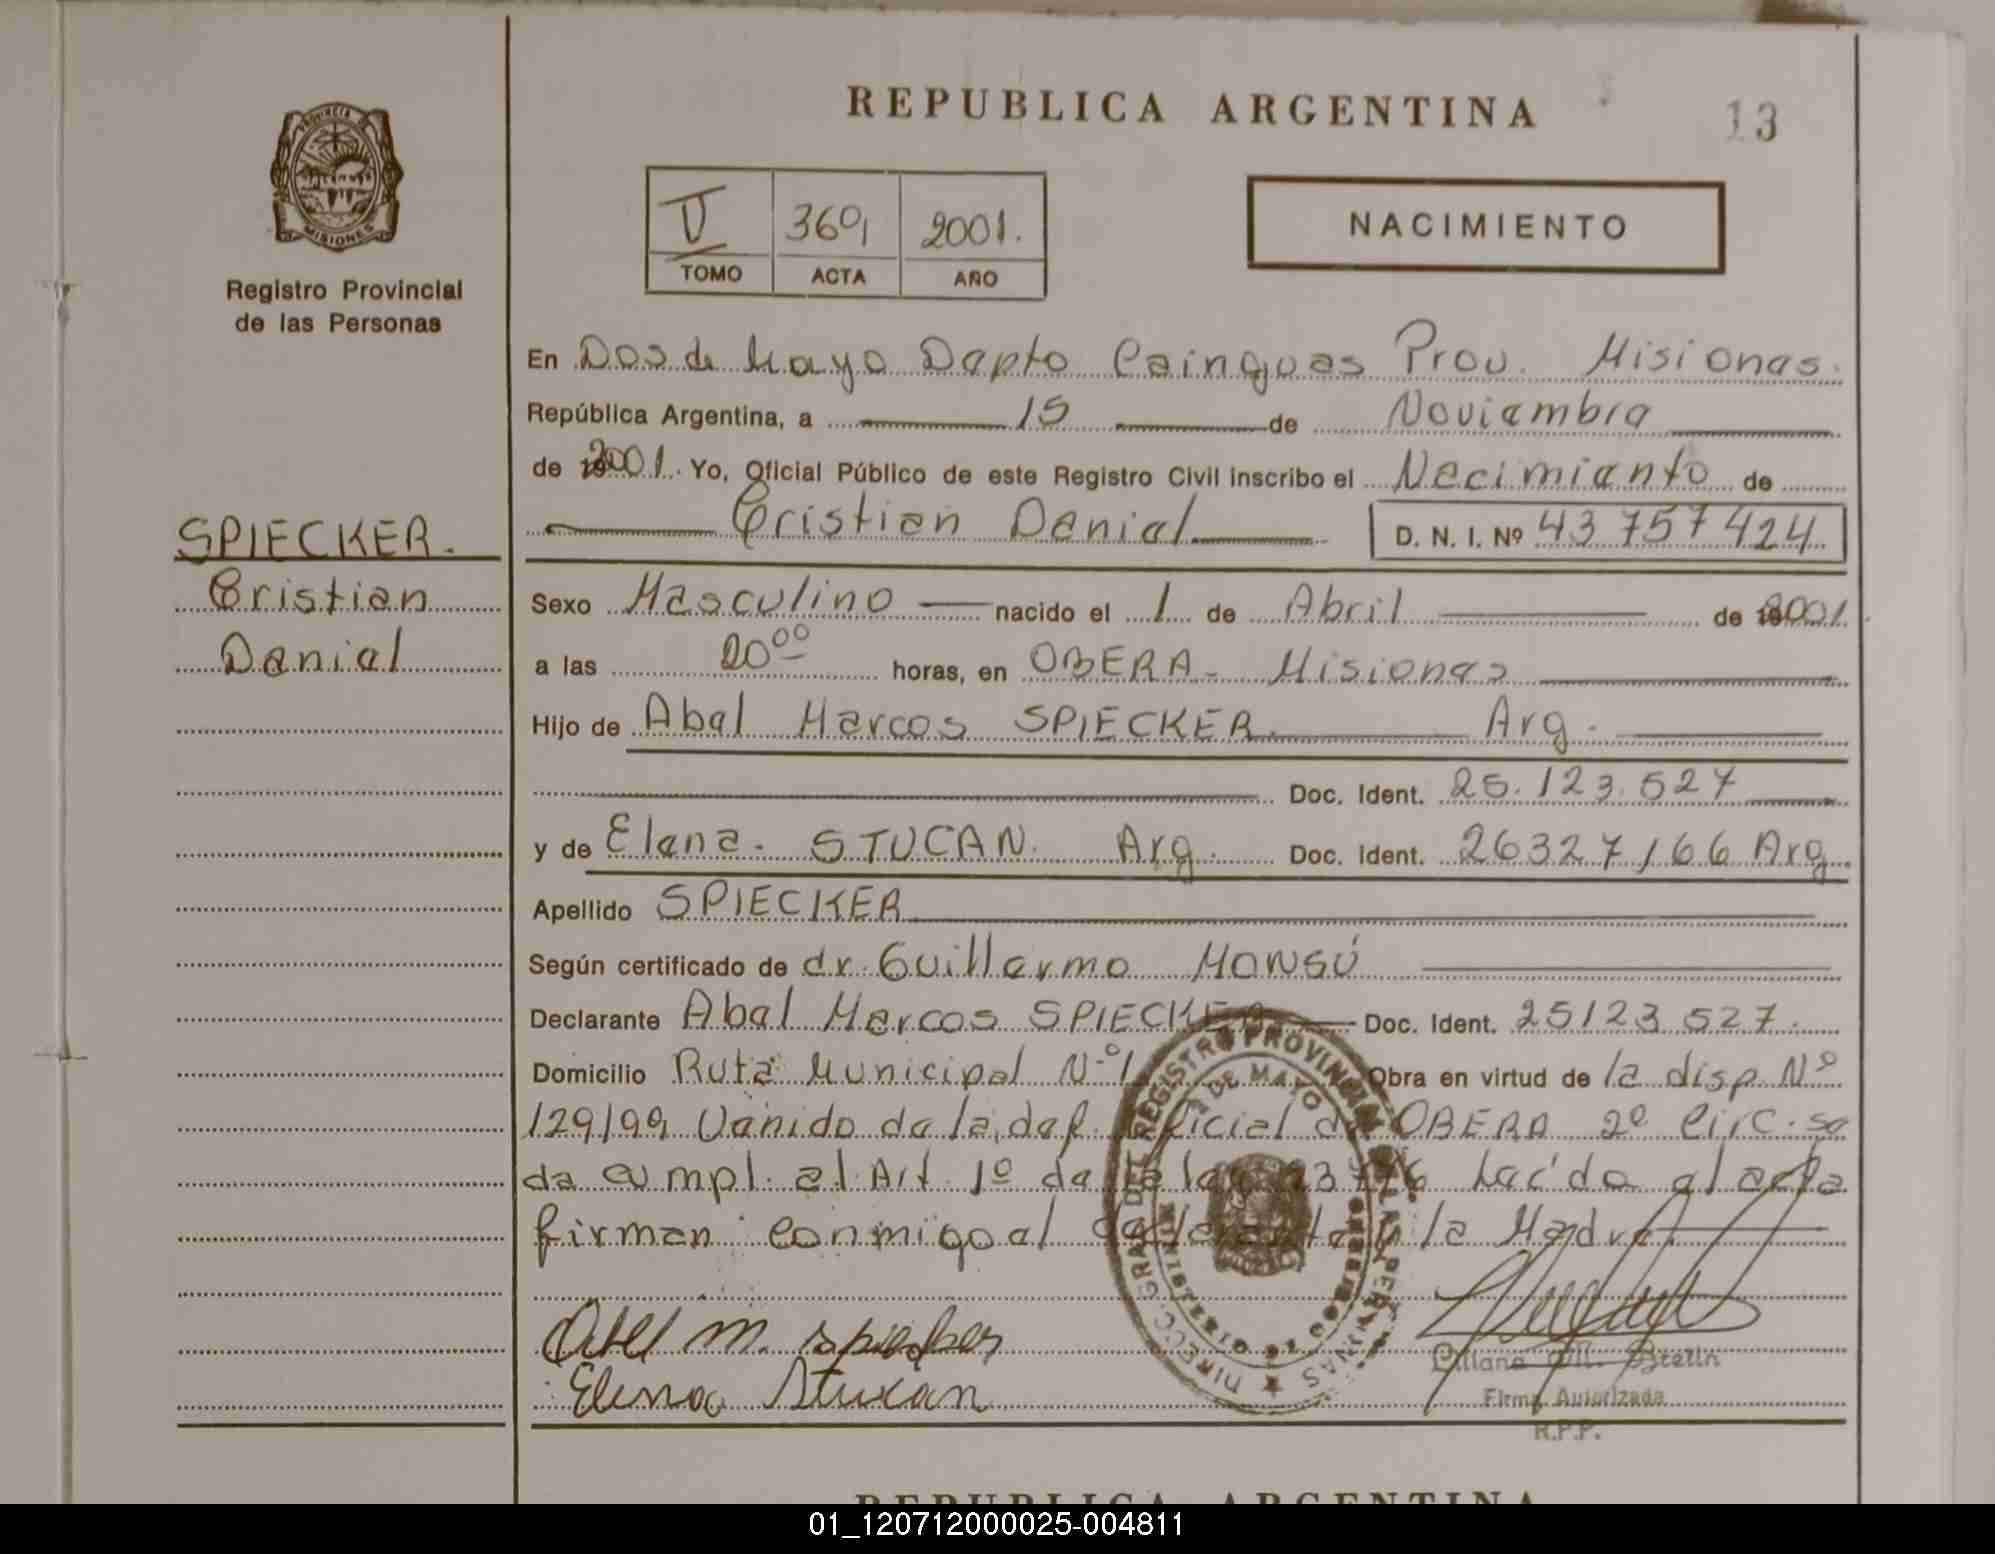 REPUBLICA ARGENTINA
13
PROVINCIA
MISIONES
Registro Provincial
de las Personas
TOMO ACTA AÑO
2001.
NACIMIENTO
En Dos de Mayo Depto Cainguas Prov. Misiones.
República Argentina, a 15 de Noviembre
de 2001. Yo, Oficial Público de este Registro Civil inscribo el Nacimiento de
Cristian Daniel D. N. I. Nº 43 757 424
SPIECKER.
Cristian
Daniel
Sexo Masculino nacido el 1 de Abril de 2001.
a las 20⁰⁰ horas, en OBERA - Misiones
Hijo de Abel Marcos SPIECKER Arg.
Doc. Ident. 25.123.527
y de Elena. STUCAN. Arg. Doc. Ident. 26327166 Arg
Apellido SPIECKER
Según certificado de dr. Guillermo MONSÚ
Declarante Abel Marcos SPIECKER Doc. Ident. 25123 527.
Domicilio Ruta Municipal Nº 1 Obra en virtud de la disp Nº
129/99 Venido de la def. oficial de OBERA 2º Circ. se
da cumpl. al Art 1º de la ley Leída el acta
firman conmigo el declarante y la Madre.
DIRECC. GRAL. DE REGISTRO PROVINCIAL DE LAS PERSONAS
2 DE MAYO
Abel M. Spiecker
Elena Stucan
Firma Autorizada
R.P.P.
REPUBLICA ARGENTINA
01_120712000025-004811